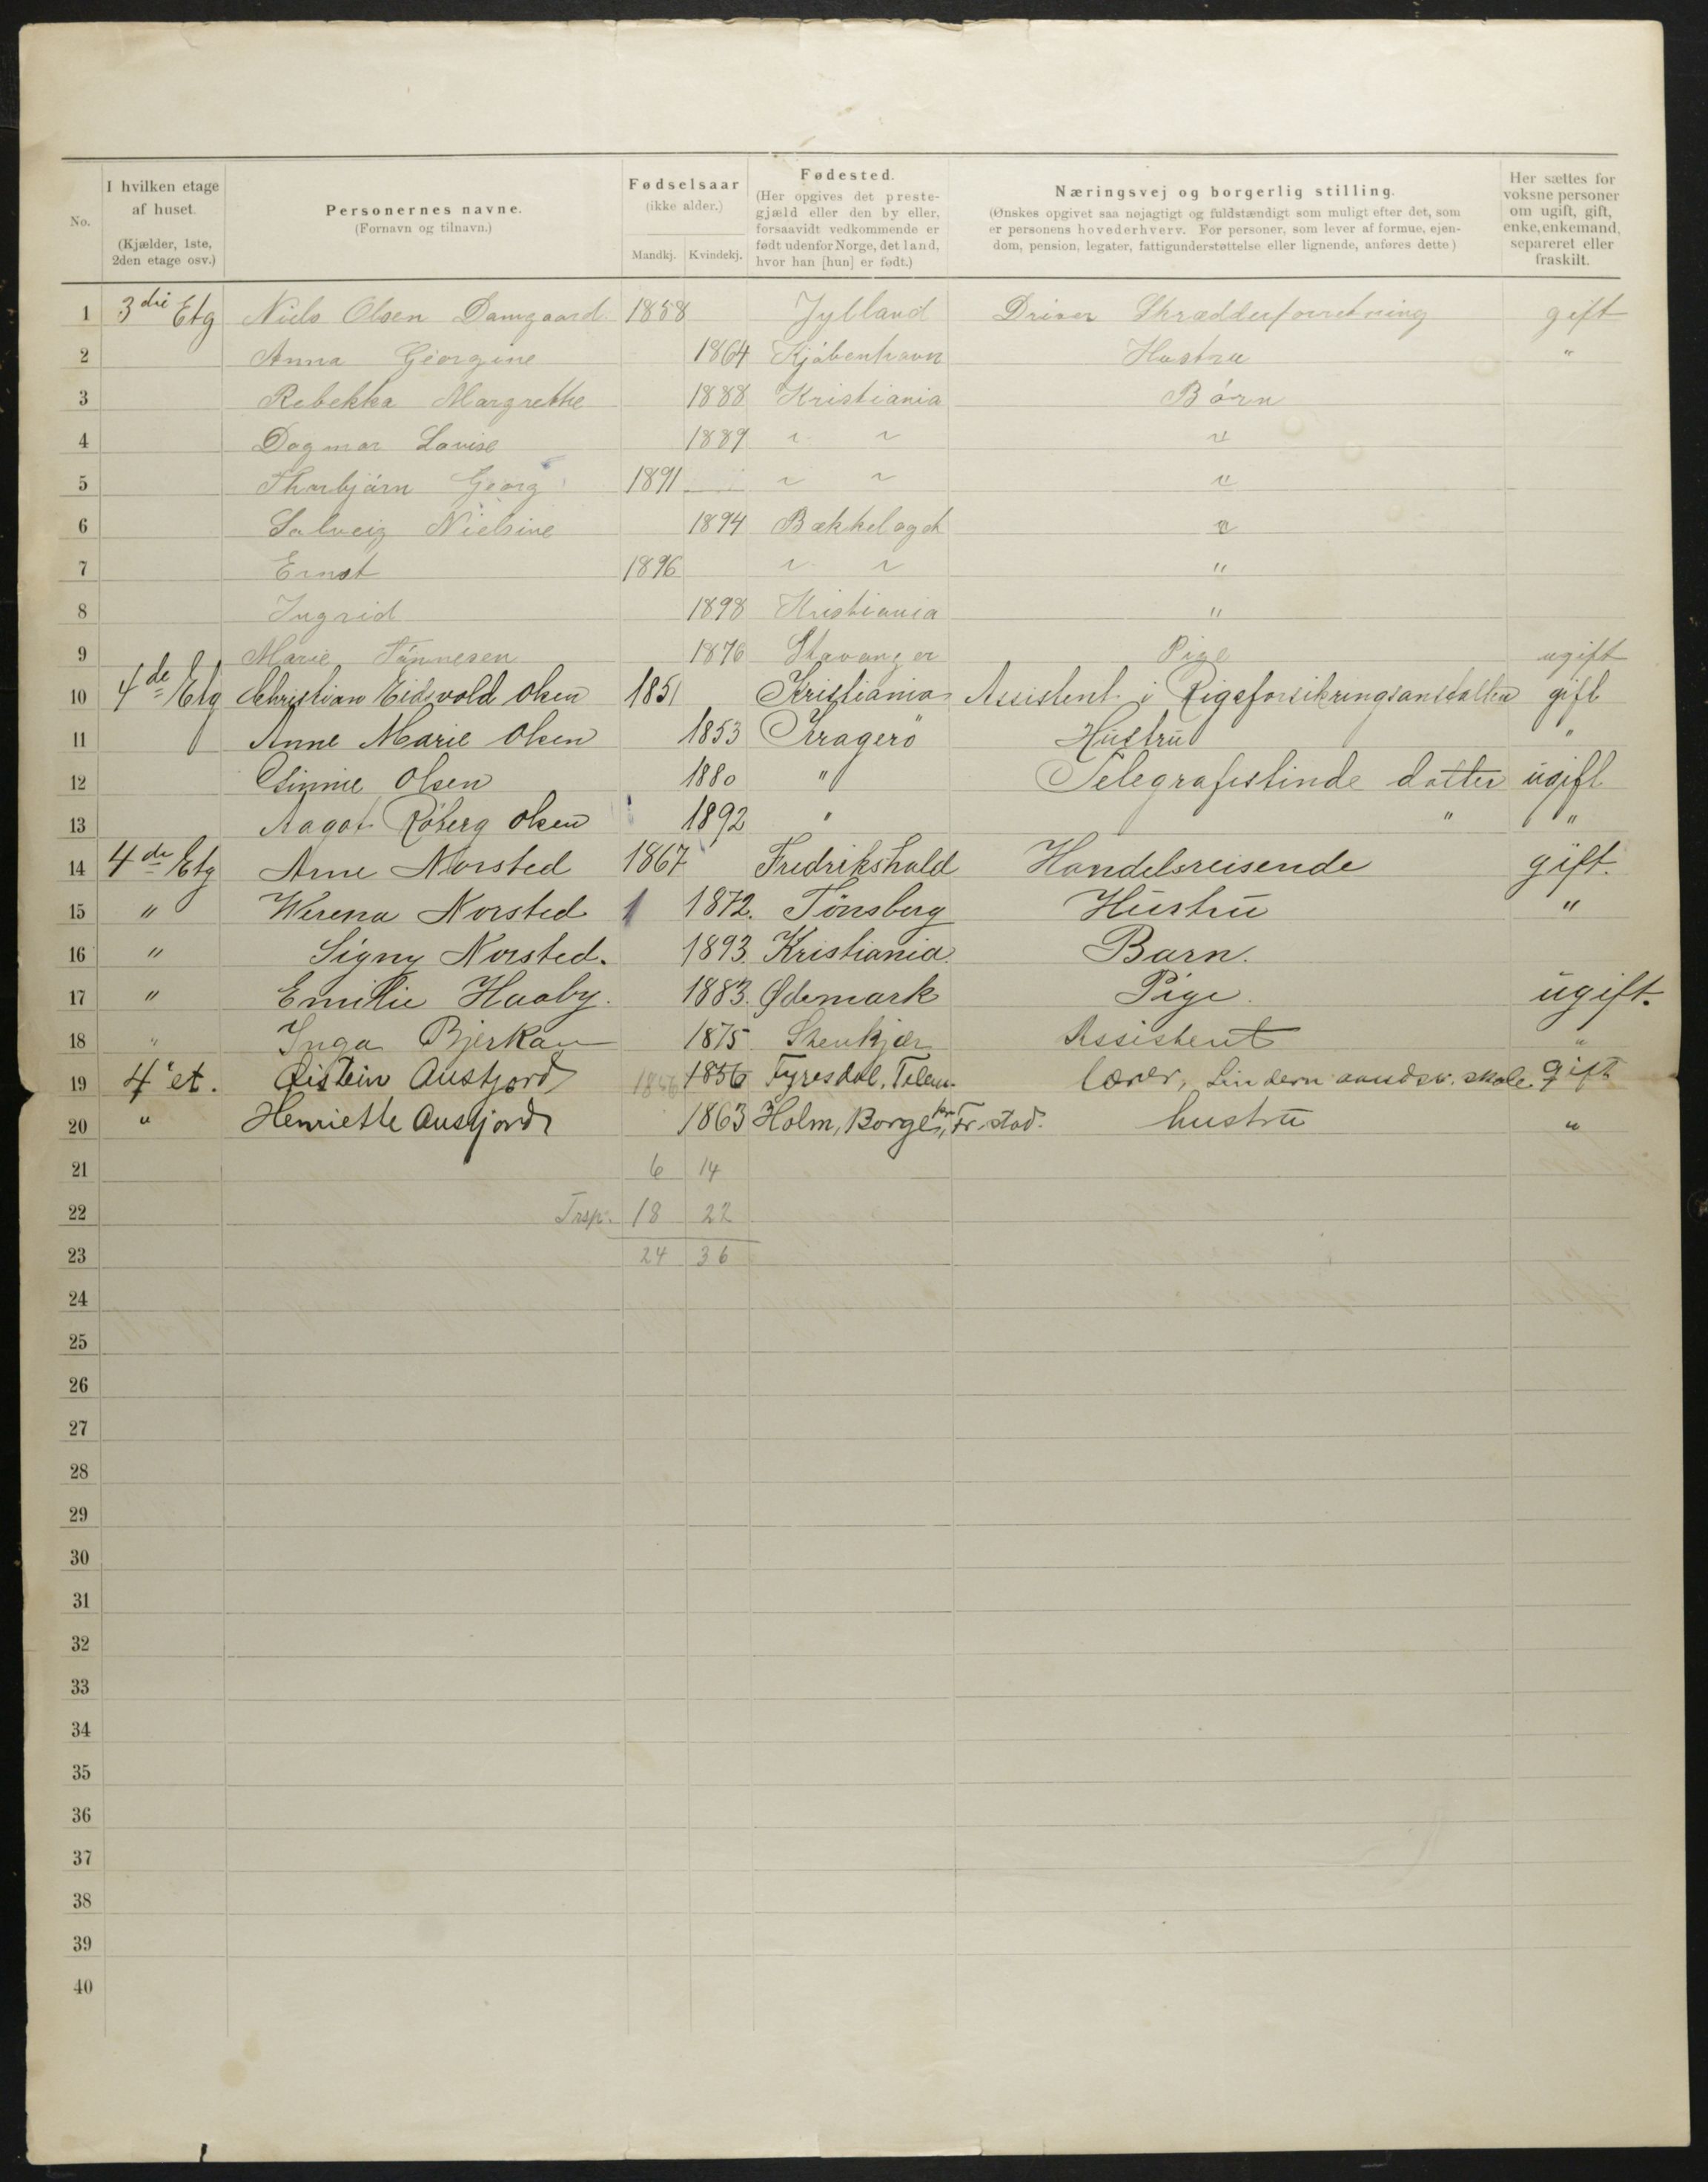 No. | I hvilken etage af huset. (Kjælder, 1ste, 2den etage osv.) | Personernes navne. (Fornavn og tilnavn.) | Fødselsaar (ikke alder.) Mandkj. Kvindekj. | Fødested. (Her opgives det prestegjæld eller den by eller, forsaavidt vedkommende er født udenfor Norge, det land, hvor han [hun] er født.) | Næringsvej og borgerlig stilling. (Ønskes opgivet saa nøjagtigt og fuldstændigt som muligt efter det, som er personens hovederhverv. For personer, som lever af formue, ejendom, pension, legater, fattigunderstøttelse eller lignende, anføres dette) | Her sættes for voksne personer om ugift, gift, enke, enkemand, separeret eller fraskilt.
1 3die Etg Niels Olsen Damgaard 1858 Jylland Driver Skrædderforretning gift
2 Anna Georgine 1864 Kjøbenhavn Hustru "
3 Rebekka Margrethe 1888 Kristiania Børn
4 Dagmar Lovise 1889 " " "
5 Thorbjørn Georg 1891 " " "
6 Solveig Nielsine 1894 Bækkelaget "
7 Ernst 1896 " " "
8 Ingrid 1898 Kristiania "
9 Marie Tønnesen 1876 Stavanger Pige ugift
10 4de Etg Christian Eidsvold Olsen 1851 Kristiania Assistent i Rigsforsikringsanstalten gift
11 Anne Marie Olsen 1853 Kragerö Hustru "
12 Olsen 1880 " Telegrafistinde datter ugift
13 Aagot Röberg Olsen 1892 " " "
14 4de Etg Arne Norsted 1867 Fredrikshald Handelsreisende gift.
15 " Werena Norsted 1 1872. Tönsberg Hustru "
16 " Signy Norsted. 1893. Kristiania. Barn.
17 " Emilie Haaby. 1883. Ødemark Pige. ugift.
18 " Inga Bjerkan 1875 Stenkjær Assistent "
19 4' et. Øistein Austjord 1856 1856 Fyresdal, Telem. lærer, Lindern aandsv. skole. gift
20 " Henriette Austjord 1863 Holm, Borge, Fr.stad. hustru "
21 6 14
22 Trsp. 18 22
23 24 36
24
25
26
27
28
29
30
31
32
33
34
35
36
37
38
39
40